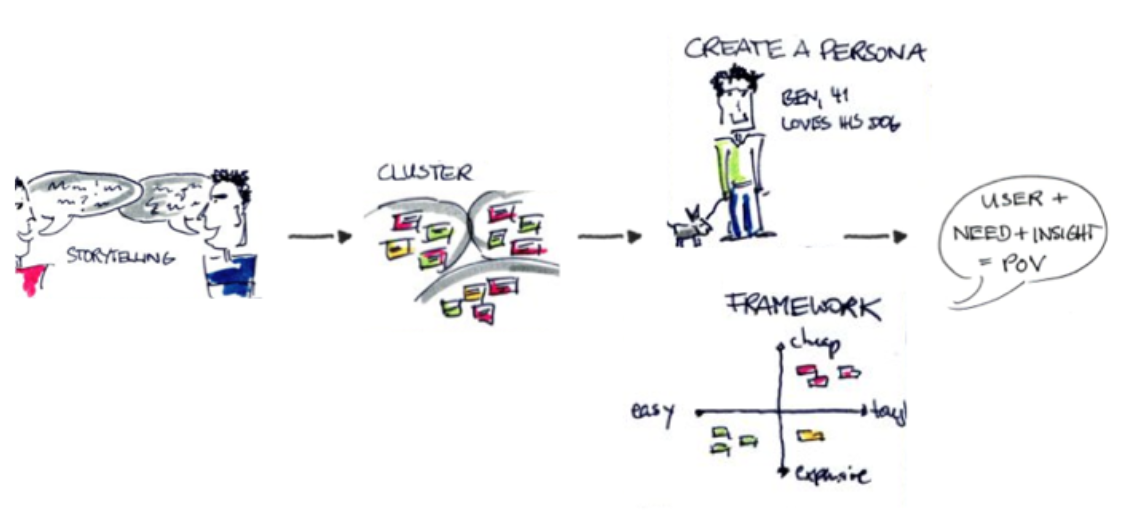 STORYTELLING
CLUSTER
CREATE A PERSONA
BEN, 41
LOVES HIS DOG
FRAMEWORK
cheap
easy
expensive
USER +
NEED + INSIGHT
= POV